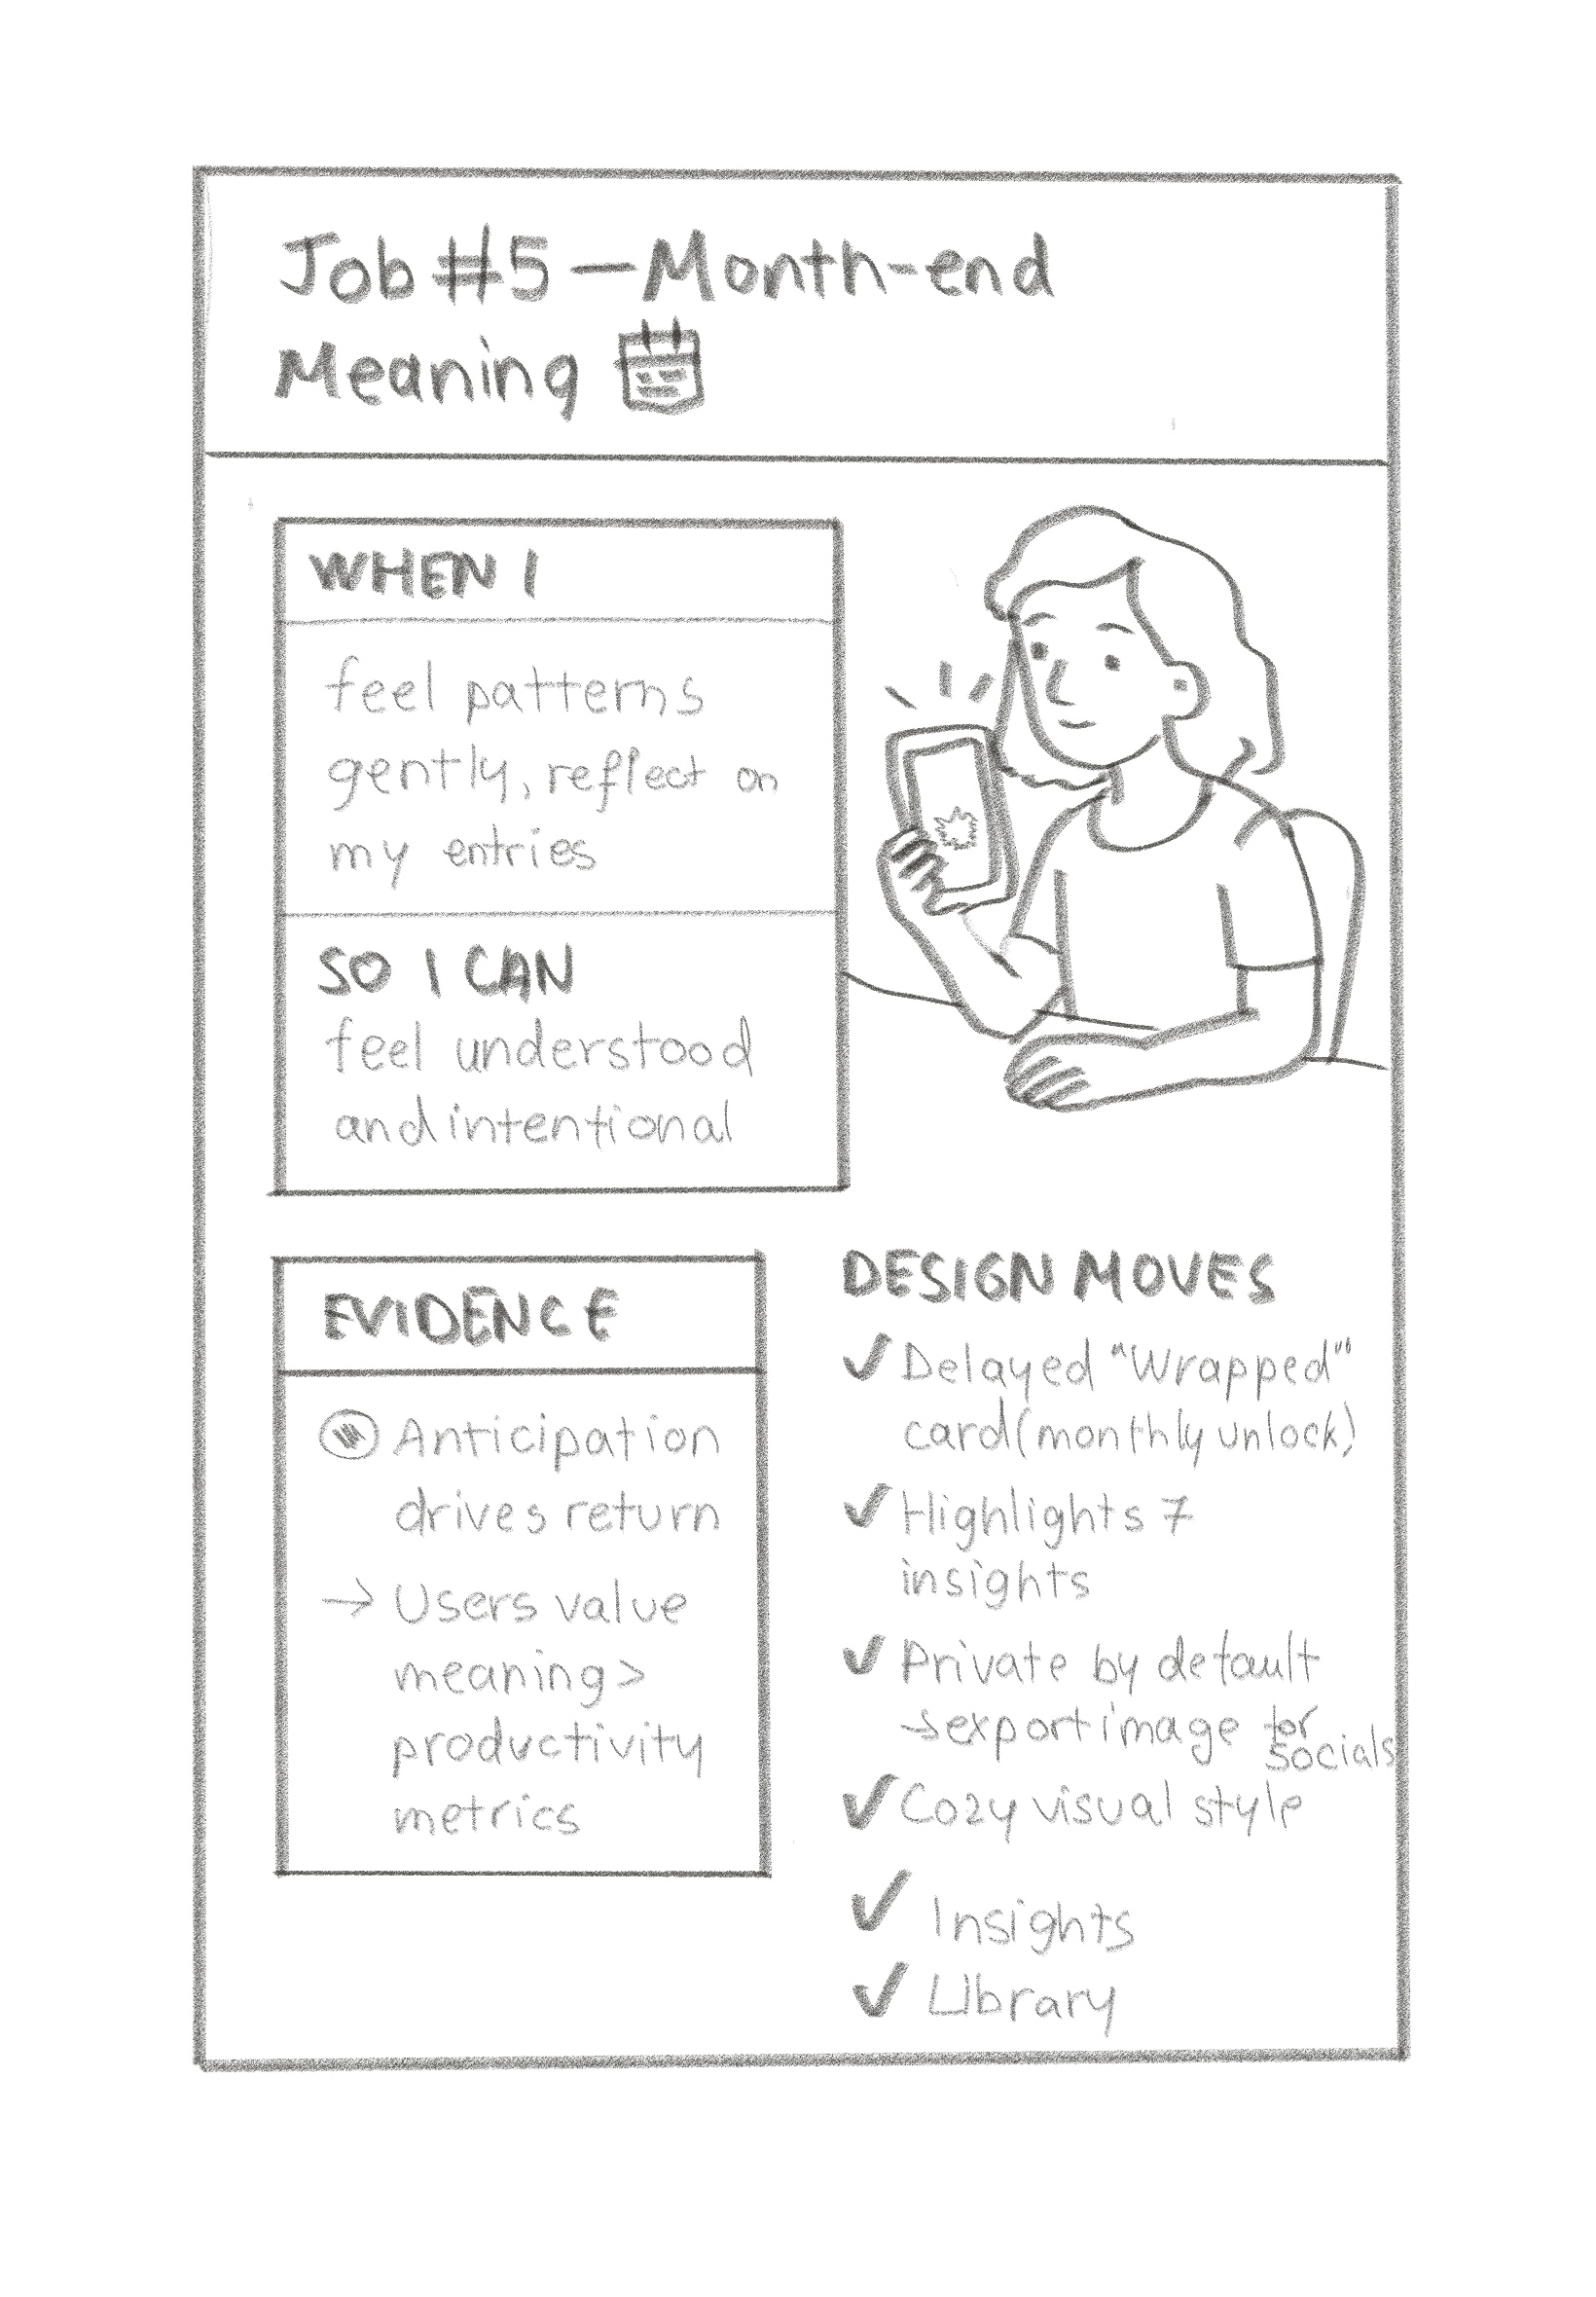 Job #5 — Month-end
Meaning
WHEN I
feel patterns
gently, reflect on
my entries
SO I CAN
feel understood
and intentional
EVIDENCE
Anticipation
drives return
→ Users value
meaning >
productivity
metrics
DESIGN MOVES
✓ Delayed "Wrapped"
card (monthly unlock)
✓ Highlights 7
insights
✓ Private by default
→ export image for
socials
✓ Cozy visual style
✓ Insights
✓ Library